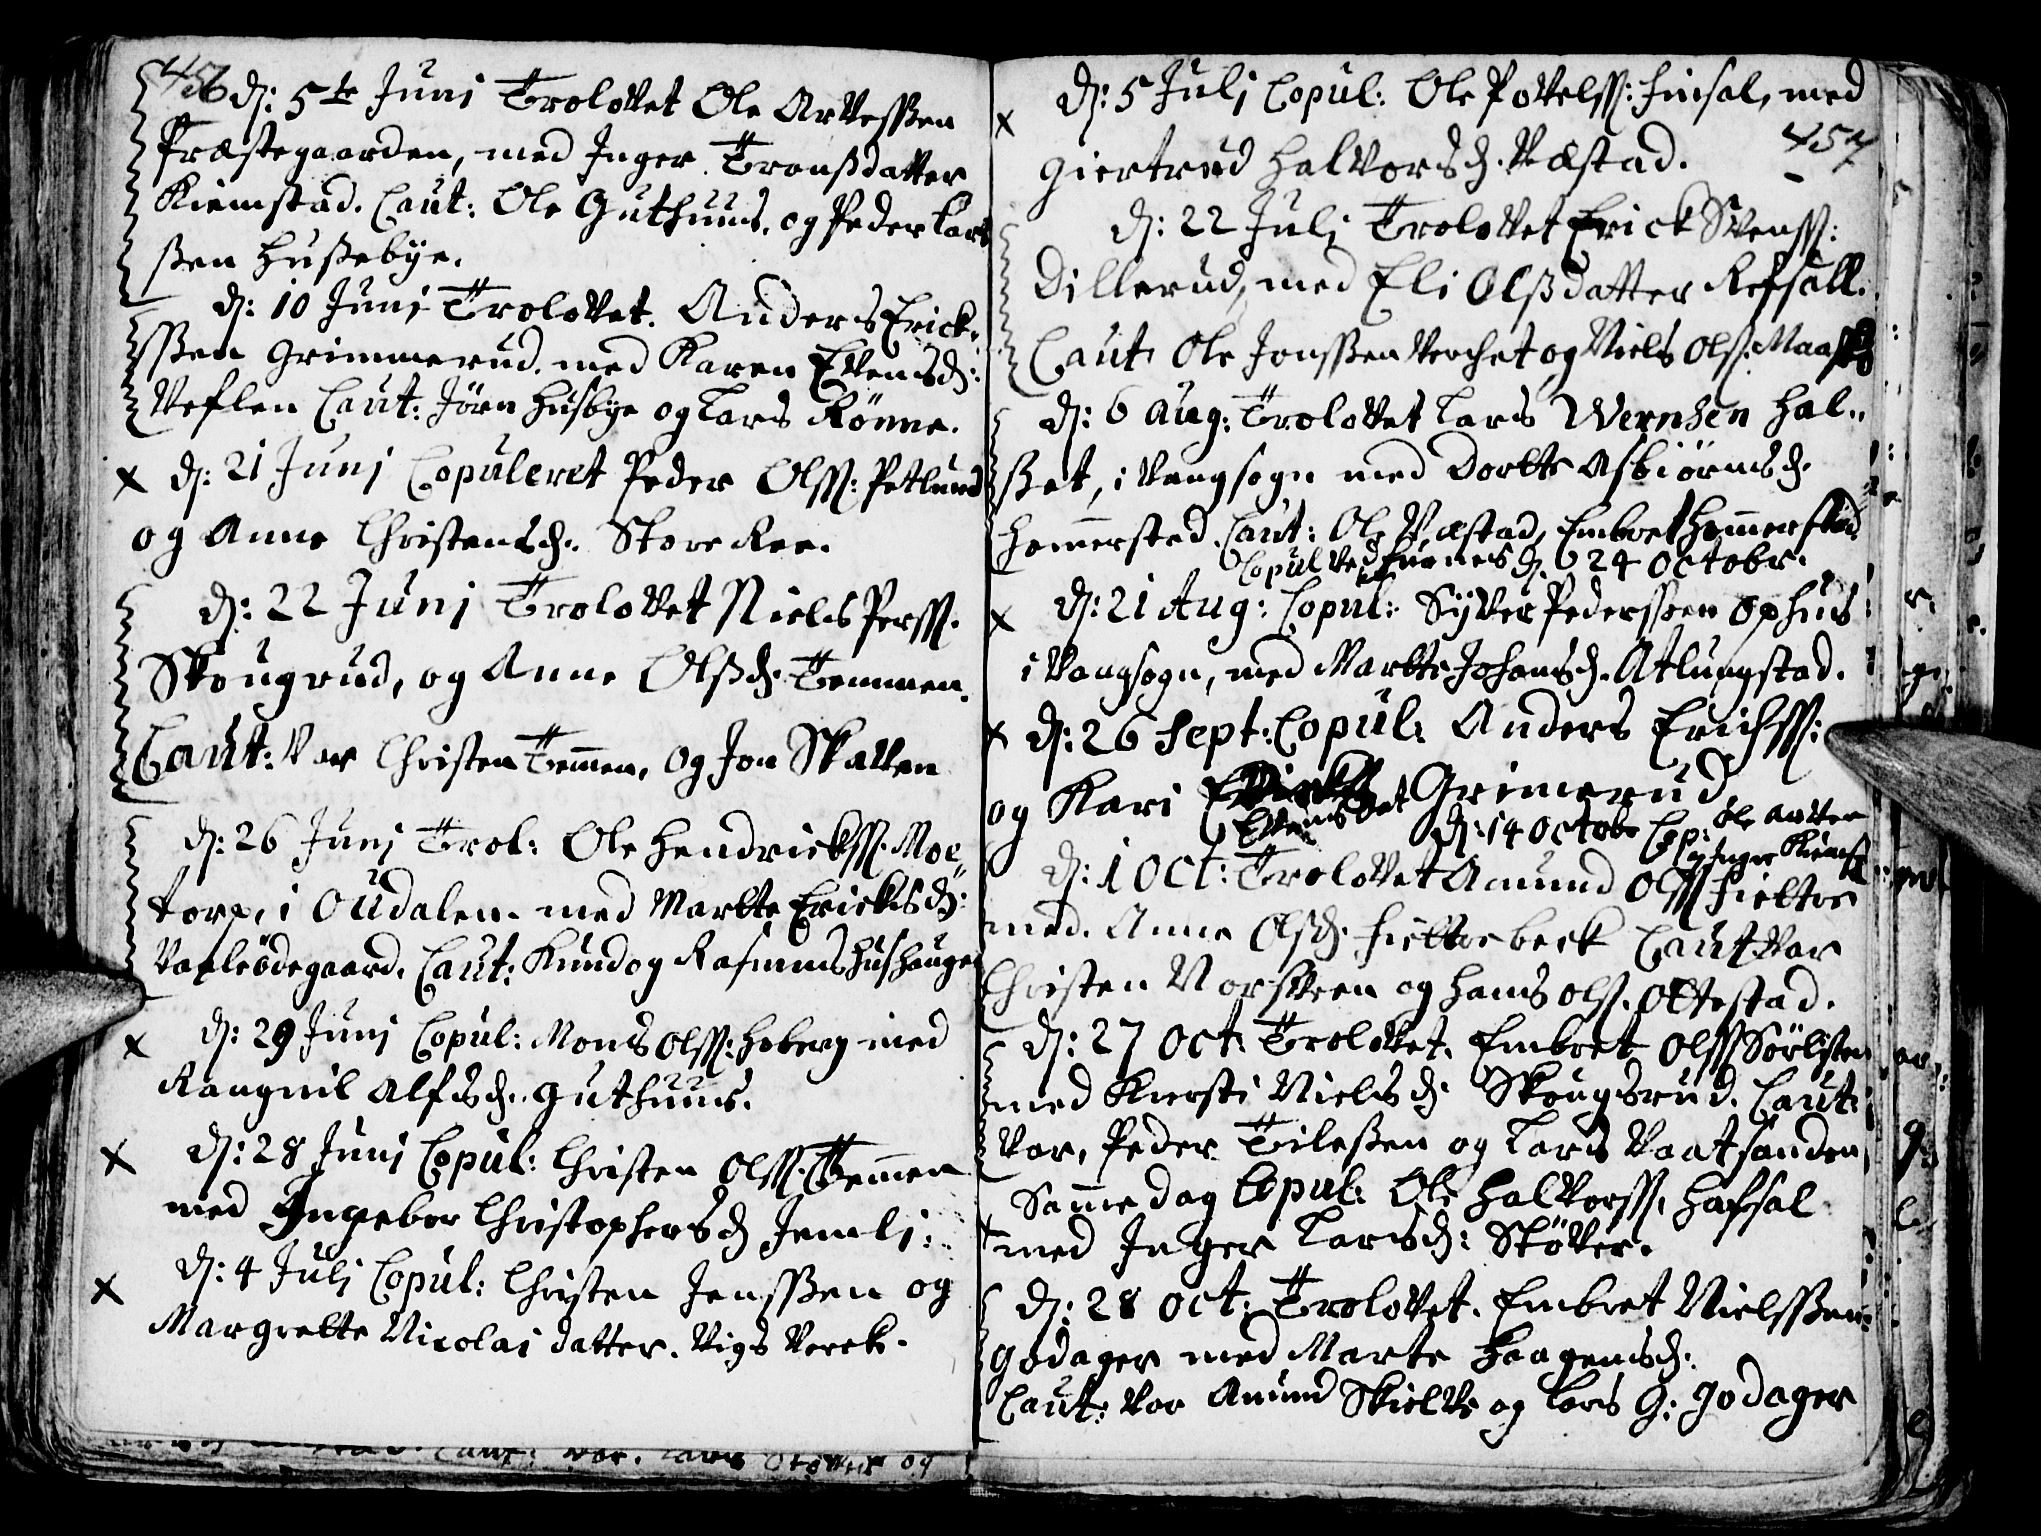 456 d: 5te Junj Trolovet Ole Arvesßen
Præstegaarden, med Inger Tronßdatter
Kiemstad. Caut: Ole Guthuus, og Peder Lars
ßen Hußebye.
d: 10 Junj Trolovet. Anders Erick-
sßen Grimmerud. med Karen Evensd:
Veflen Caut: Jörn Husbye og Lars Rönne.
x d: 21 Junj Copuleret Peder Olss: Petlund
og Anne Christensd. Store Ree.
d: 22 Junj Trolovet Niels Perss.
Skougrud, og Anne Olßd. Temmen.
Caut: Var Christen Temmen, og Jon Skatten
d: 26 Junj Trol: Ole Hendrickss. Moe
torp, i Oudalen med Martte Ericksd:
Valeödegaard. Caut: Knud og Rasmus Hushaugen
x d: 29 Junj Copul: Mons Olss: Hoberg med
Rangnil Alfsd. Guthuus.
x d: 28 Junj Copul: Christen Olss. Temmen
med Ingebor Christophersd Jemlj:
x d: 4 Julj Copul: Christen Jensßen og
Margrette Nicolai datter. Vigs Verck.
x d: 5 Julj Copul: Ole Povelss: Finsal, med
457
Giertrud Halvorsd. Væstad.
d: 22 Julj Trolovet Erick Svenss:
Dillerud, med Eli Olßdatter Refsall.
Caut: Ole Jonsßen Verchet og Niels Ols.
d: 6 Aug: Trolovet Lars Wernsen Hal-
ßet, i Vangsogn med Dortte Asbiörnsd.
Hommerstad. Caut: Ole Væstad, Embret Hommerstad
Copul ved Furnes d. 24 Octobr.
x d: 21 Aug: Copul: Syver Pedersßen Ophus
i Vangsogn, med Martte Johansd. Atlungstad.
x d: 26 Sept: Copul: Anders Erichss:
og Kari Grimerud
Evensdet d: 14 Octobr Cop: Ole Arven
og Inger Kiemst
d: 1 Oct: Trolovet Amund Olss Fieltoe
med. Anne Olsd. Fieltoebeck Caut Var
Christen Norsveen og Hans Ols. Ottestad.
d: 27 Oct: Trolovet. Embret Olss Sörlisten
med Kiersti Nielsd: Skougsrud. Caut:
Var, Peder Tileßen og Lars Vaatsanden
Samme dag Copul: Ole Halvorss. Hafsal
x med Inger Larsd: Stöver.
d: 28 Oct: Trolovet. Embret Nielsßen
Godager med Marte Haagensd:
Caut: Var Amund Skielve og Lars G: Godager